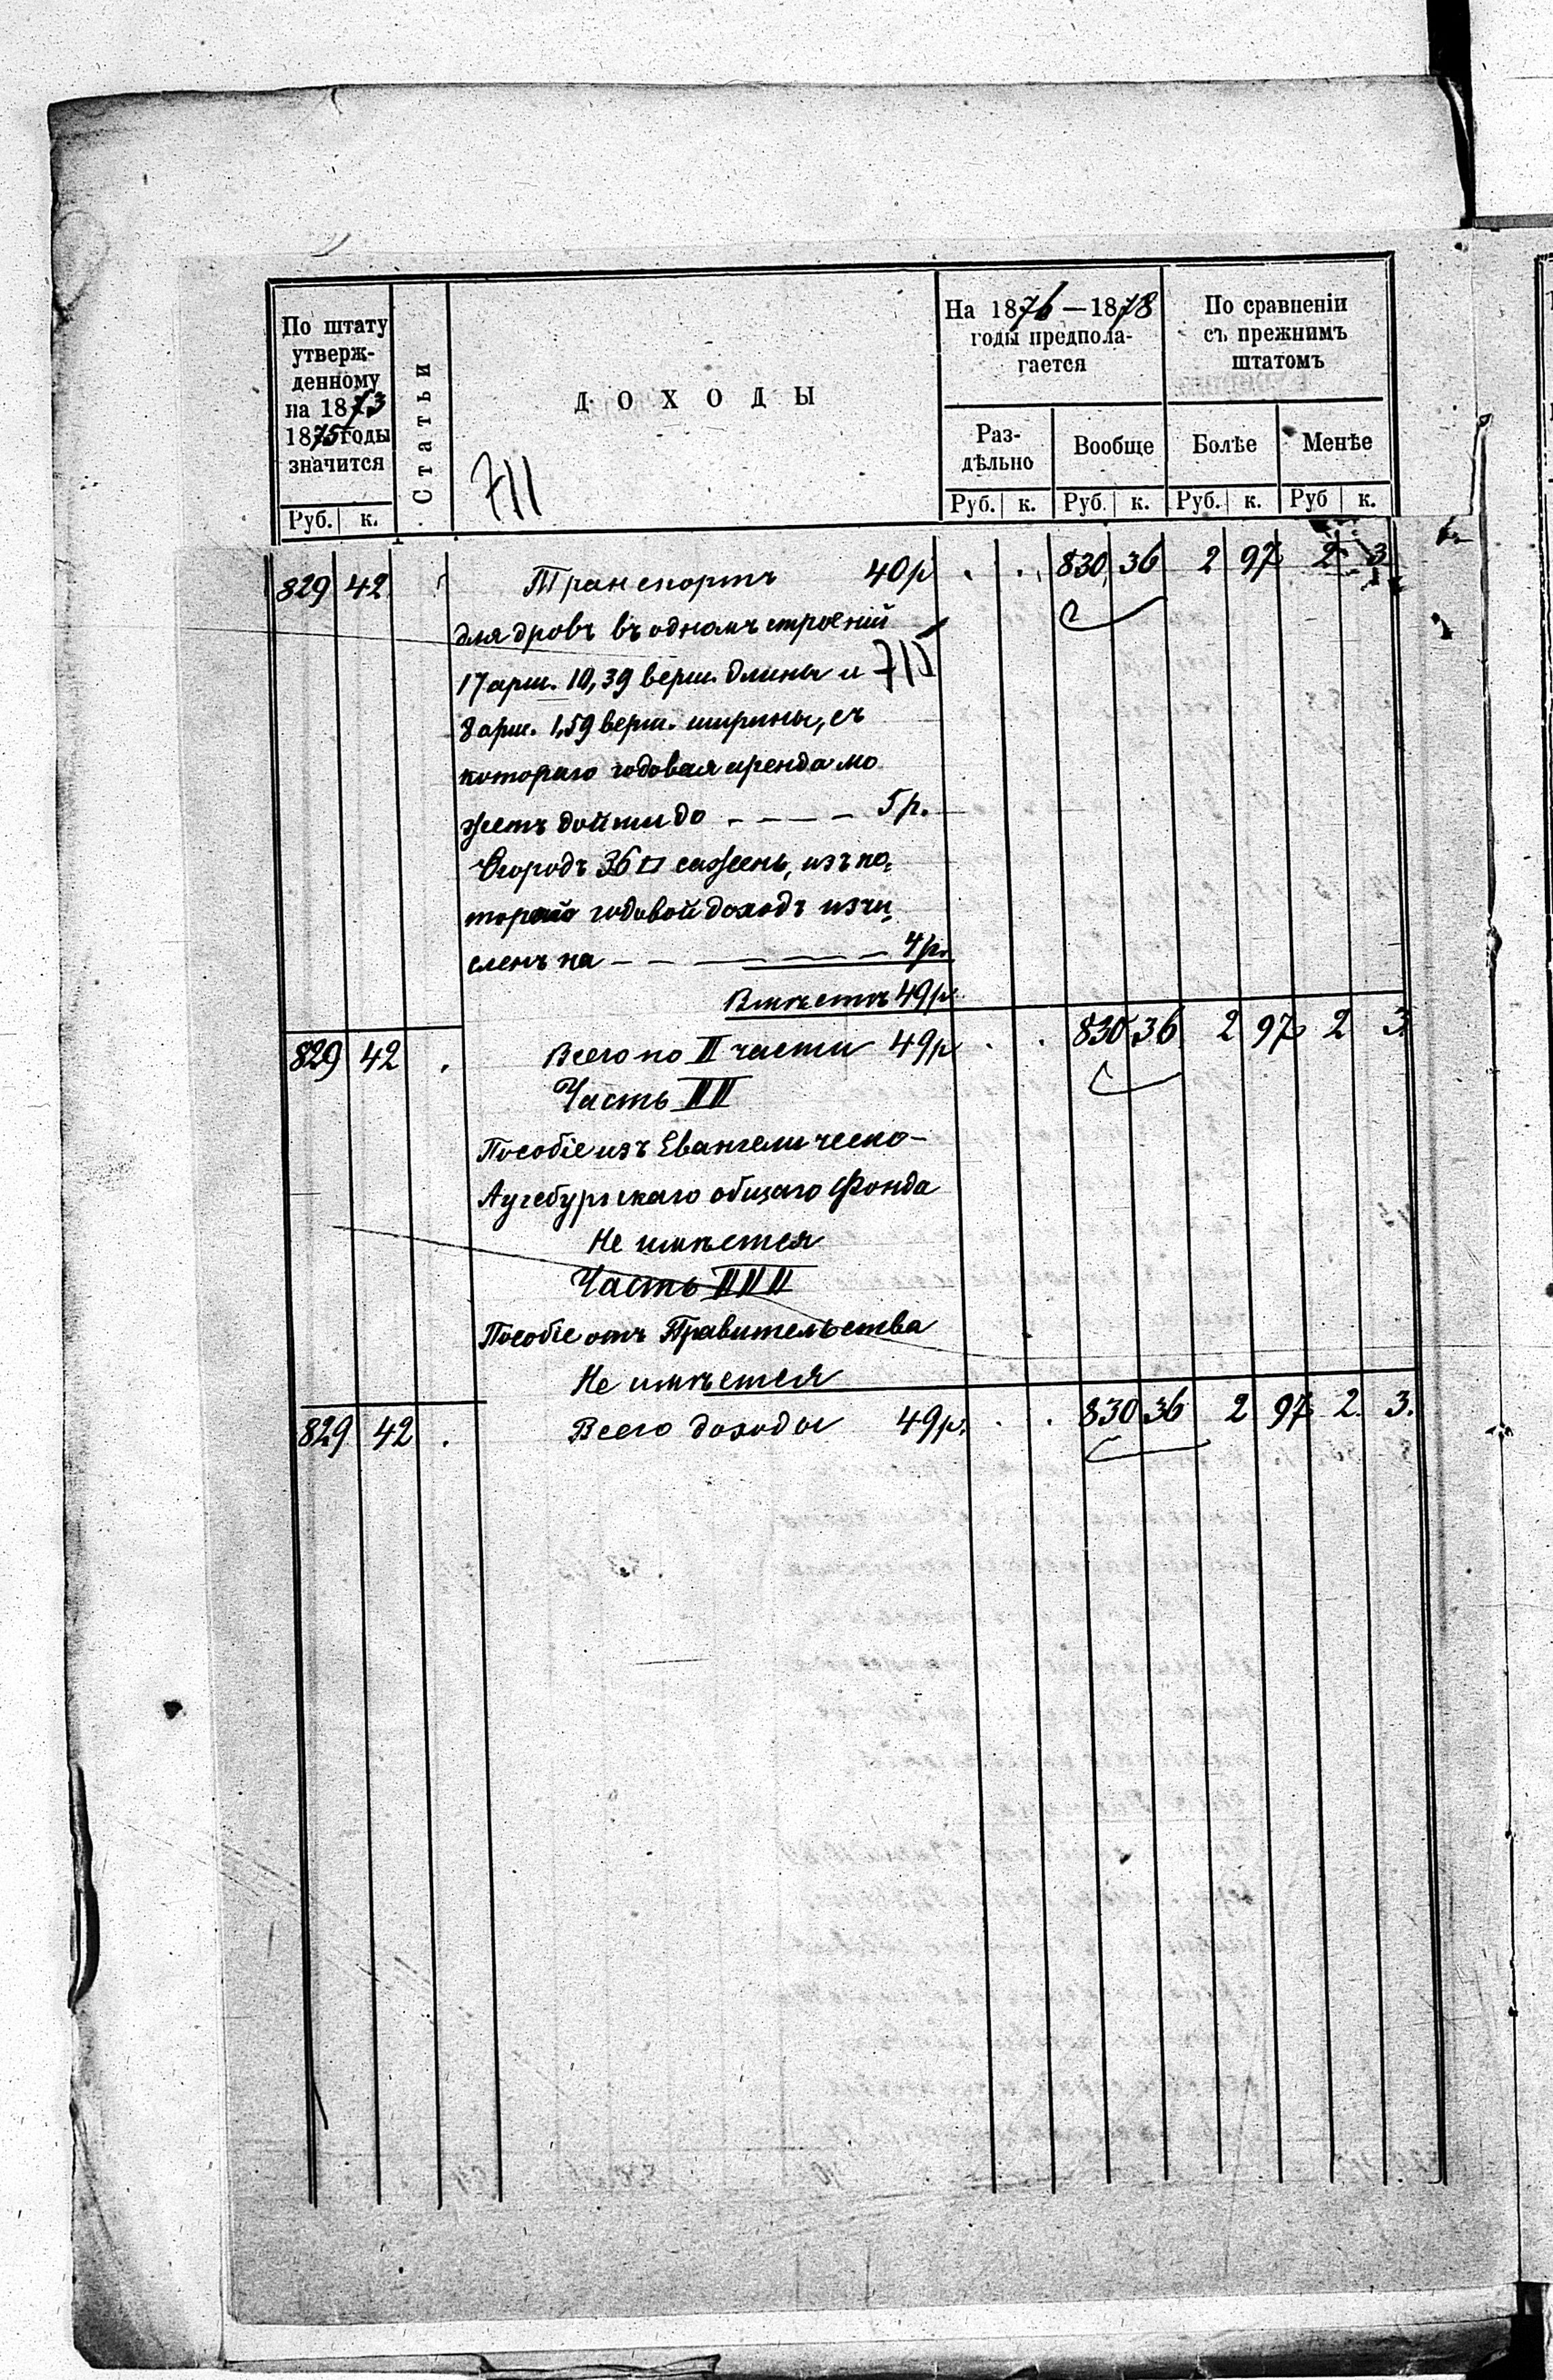 По штату
утверж-
денному
на 1873
1875 годы
значится
Руб. к.
Статьи
ДОХОДЫ
711
На 1876—1878
годы предпола-
гается
Раз-
дѣльно
Вообще
Руб. к. Руб. к.
По сравненіи
съ прежнимъ
штатомъ
Болѣе Менѣе
Руб. к. Руб к.
829 42 Транспортъ 40р . . 830 36 2 97 2 3
для дровъ въ одномъ строеній
17 арш. 10,39 верш. длины и 711
8 арш. 1,59 верш. ширины, съ
котораго годовая аренда мо
жетъ дойти до – – – – 5р.
Огородъ 36 □ сажень, изъ ко=
тораго годовой доходъ изчи
сленъ на – – – – – – 4р.
Вмѣстѣ 49р.
829 42 . Всего по II части 49р . . 830 36 2 97 2 3.
Часть II
Пособіе изъ Евангелическо-
Аугсбургскаго общаго Фонда
Не имѣется
Часть III
Пособіе отъ Правительства
Не имѣется
829 42 . Всего доходы 49р. . . 830 36 2 97 2. 3.